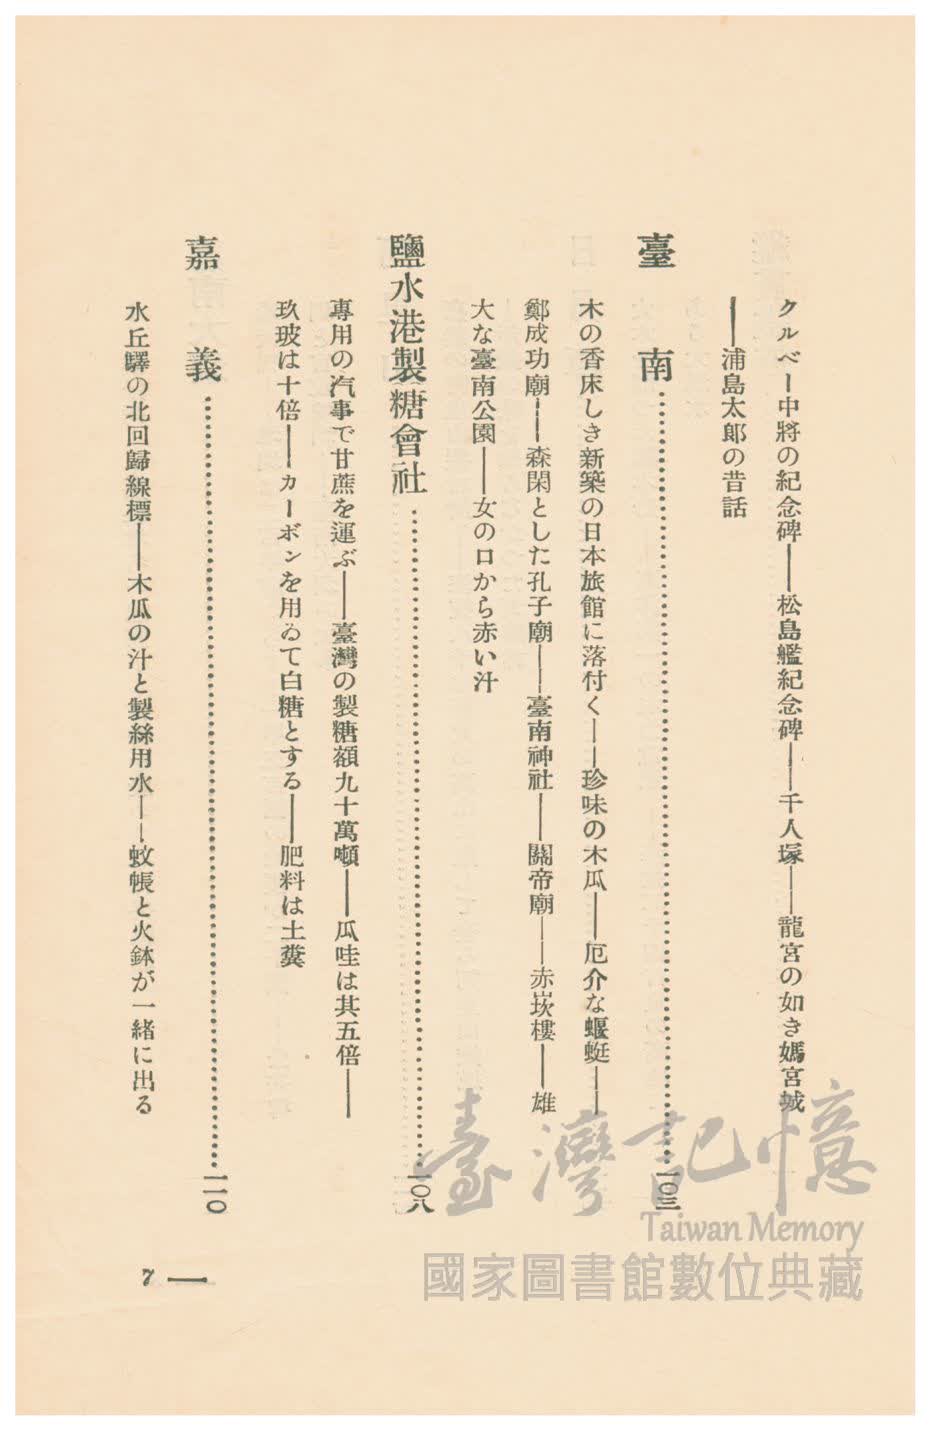 クルベー中將の紀念碑――松島艦紀念碑――千人塚――龍宮の如き媽宮城
――浦島太郎の昔話
臺南……一〇三
木の香床しき新築の日本旅館に落付く――珍味の木瓜――厄介な蝘蜓――
鄭成功廟――森閑とした孔子廟――臺南神社――關帝廟――赤崁樓――雄
大な臺南公園――女の口から赤い汁
鹽水港製糖會社……一〇八
專用の汽車で甘蔗を運ぶ――臺灣の製糖額九十萬噸――瓜哇は其五倍――
玖玻は十倍――カーボンを用ゐて白糖とする――肥料は土糞
嘉義……一一〇
水丘驛の北回歸線標――木瓜の汁と製絲用水――蚊帳と火鉢が一緒に出る
7 ――
臺灣記憶
Taiwan Memory
國家圖書館數位典藏